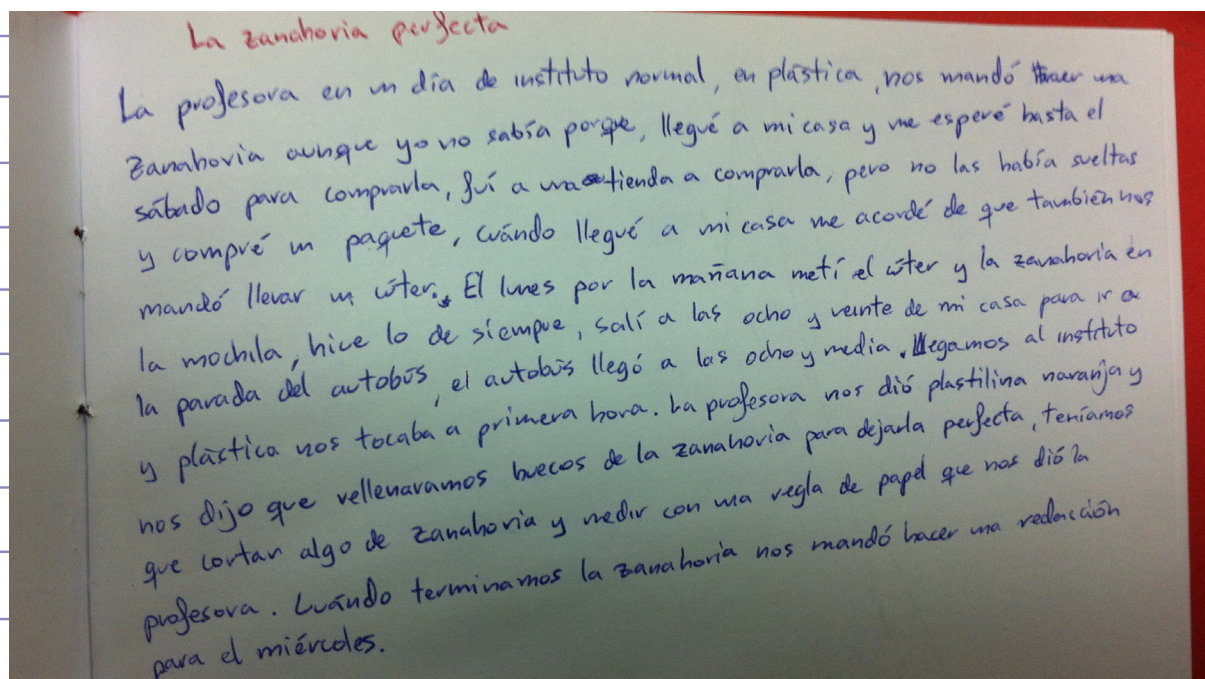 La zanahoria perfecta
La profesora en un día de instituto normal, en plástica, nos mandó traer una
zanahoria aunque yo no sabía porque, llegué a mi casa y me esperé hasta el
sábado para comprarla, fuí a una tienda a comprarla, pero no las había sueltas
y compré un paquete, cuándo llegué a mi casa me acordé de que también nos
mandó llevar un cúter. El lunes por la mañana metí el cúter y la zanahoria en
la mochila, hice lo de siempre, salí a las ocho y veinte de mi casa para ir a
la parada del autobús, el autobús llegó a las ocho y media. Llegamos al instituto
y plástica nos tocaba a primera hora. La profesora nos dió plastilina naranja y
nos dijo que rellenaramos huecos de la zanahoria para dejarla perfecta, teníamos
que cortar algo de zanahoria y medir con una regla de papel que nos dió la
profesora. Cuándo terminamos la zanahoria nos mandó hacer una redacción
para el miércoles.